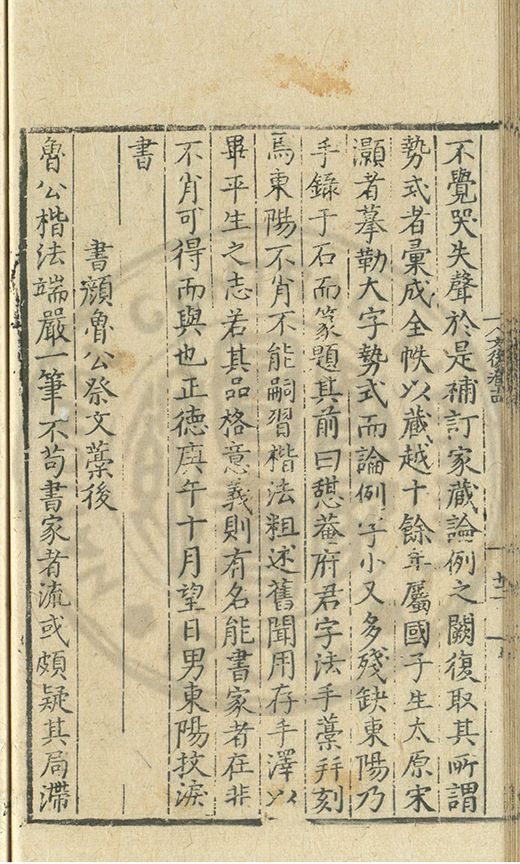 不覺哭失聲於是補訂家藏論例之闕復取其所謂
勢式者彙成全帙以藏越十餘年屬國子生太原宋
灝者摹勒大字勢式而論例字小又多殘缺東陽乃
手錄于石而篆題其前曰憇菴府君字法手藁幷刻
焉東陽不肖不能嗣習楷法粗述舊聞用存手澤以
畢平生之志若其品格意義則有名能書家者在非
不肖可得而與也正德庚午十月望日男東陽抆淚
書
書顏魯公祭文藁後
魯公楷法端嚴一筆不苟書家者流或頗疑其局滯